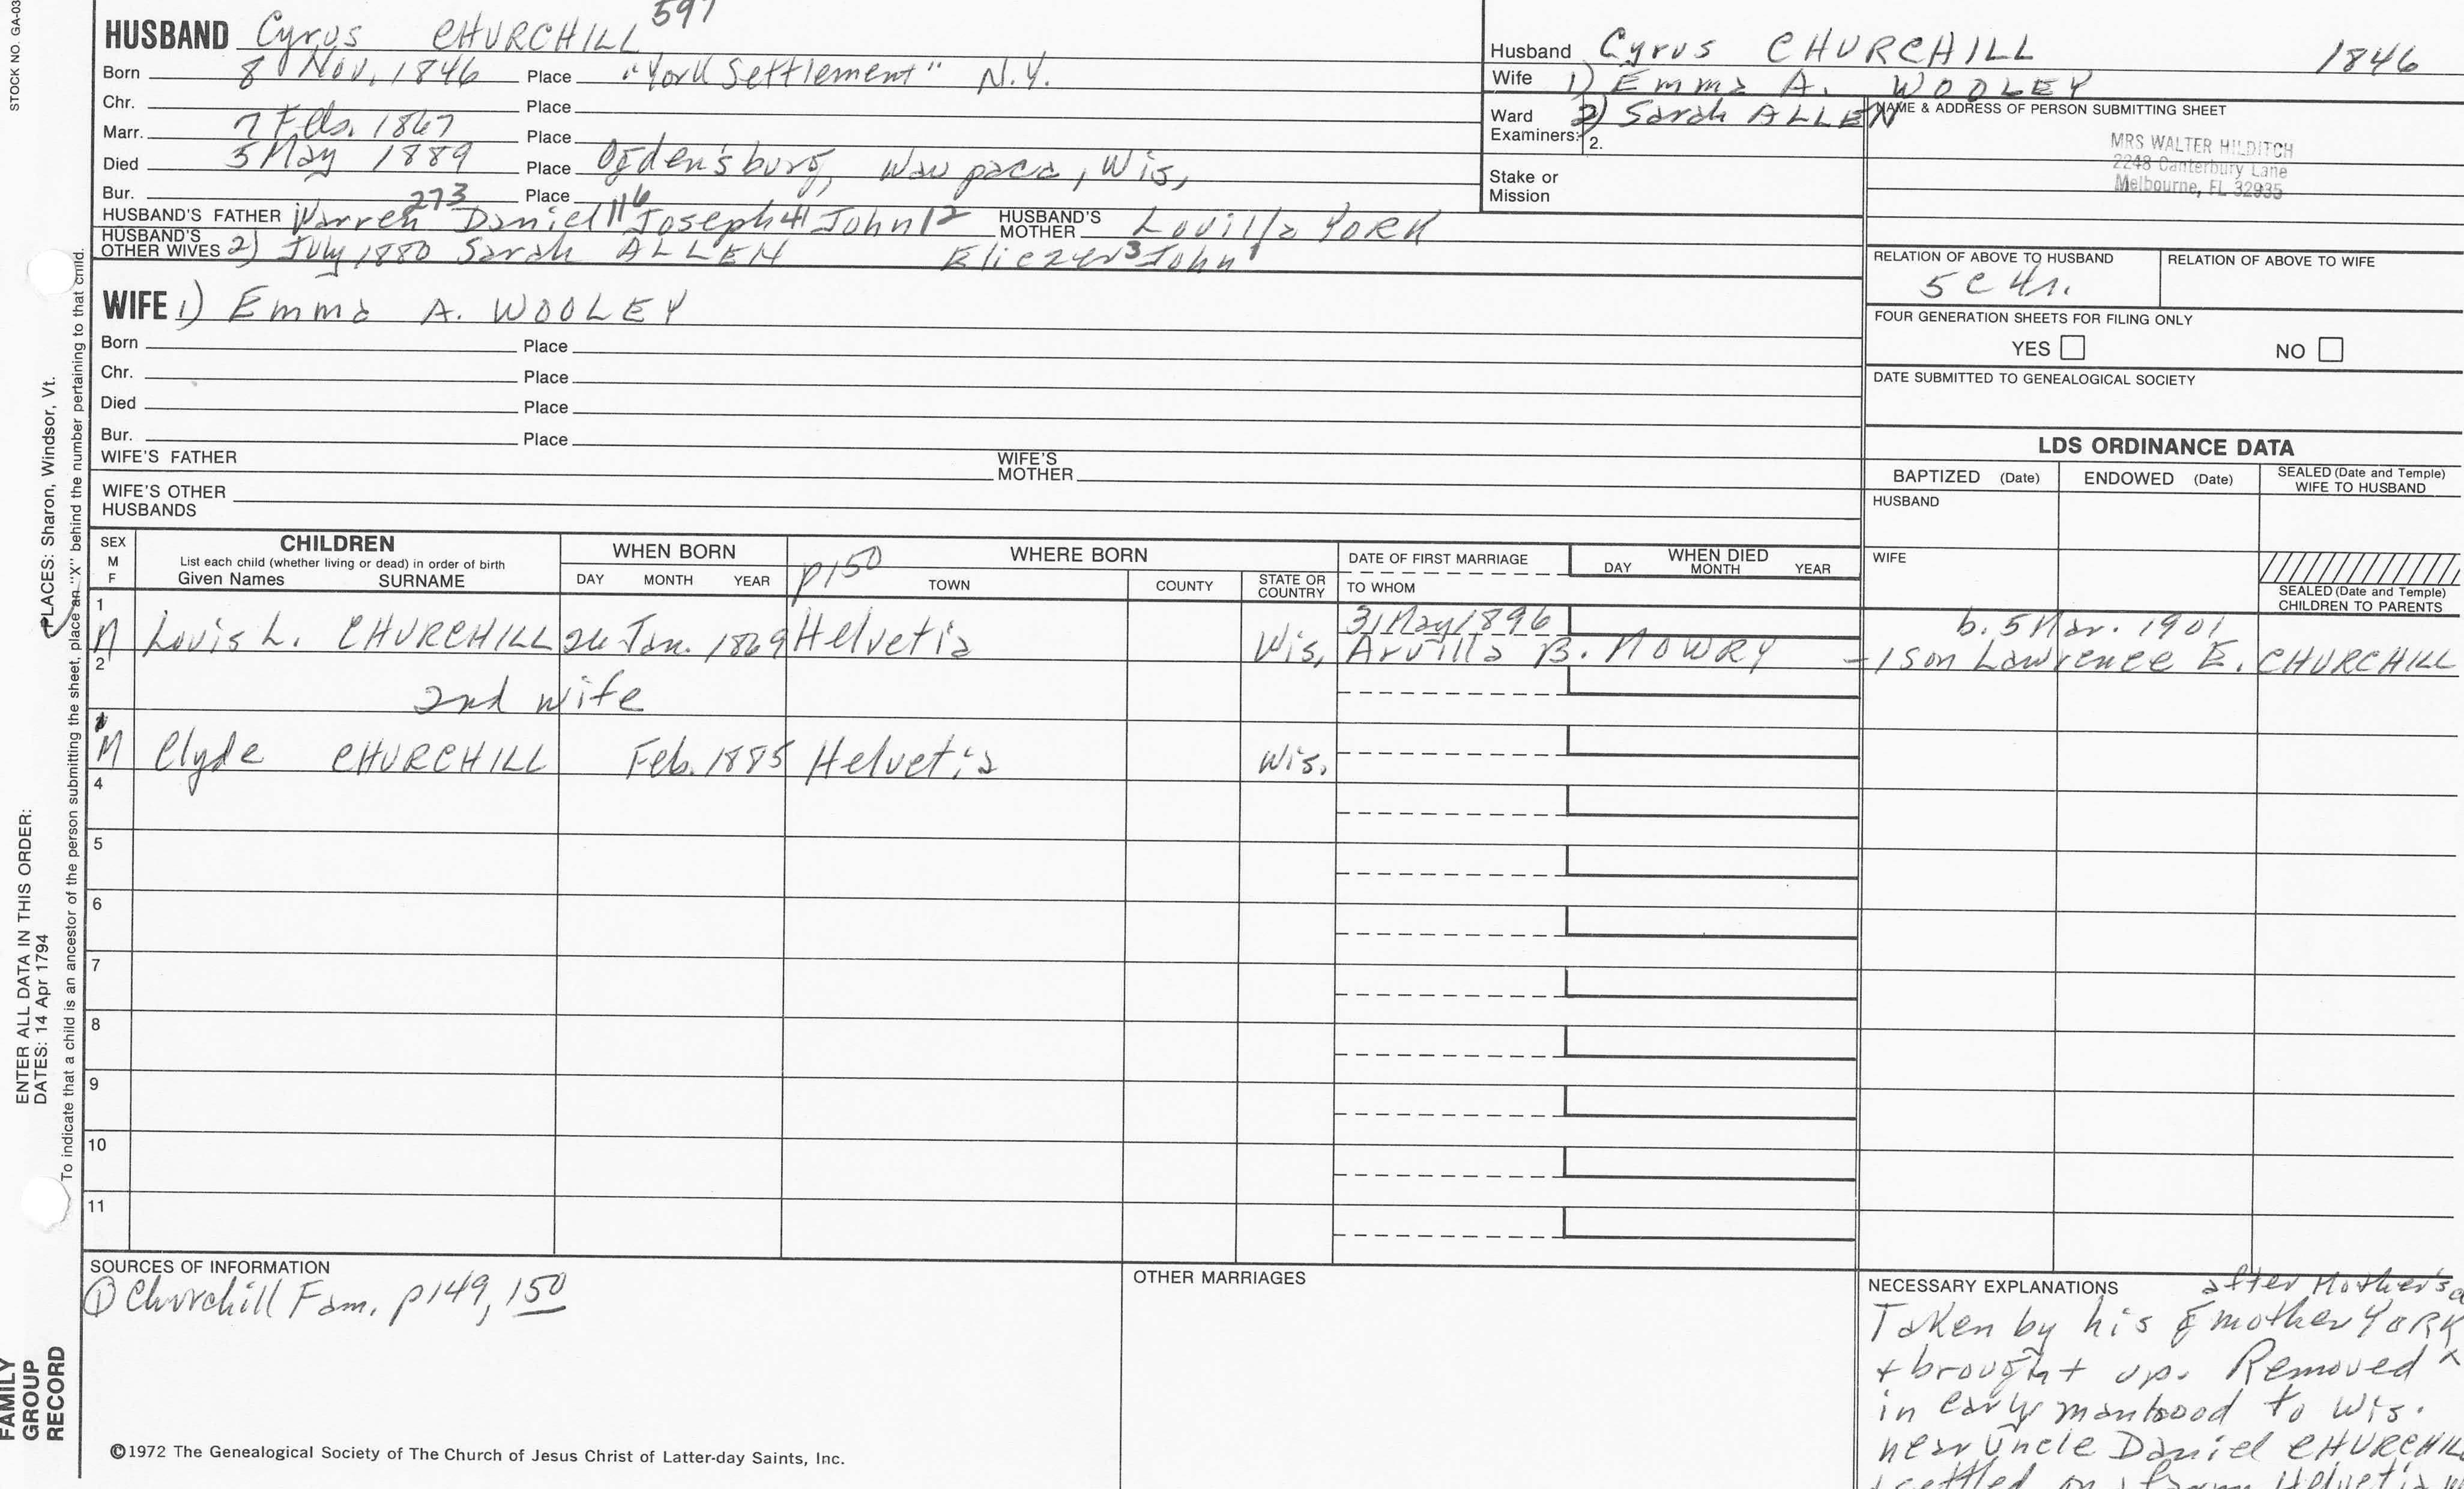 STOCK NO. GA-03
HUSBAND Cyrus CHURCHILL 597
Born 8 Nov. 1846 Place "York Settlement" N.Y.
Chr. Place
Marr. 7 Feb. 1867 Place
Died 5 May 1889 Place Ogdensburg, Waupaca, Wis.
Bur. Place
HUSBAND'S FATHER Warren 273 Daniel 116 Joseph 41 John 12 HUSBAND'S MOTHER Lovilla YORK
HUSBAND'S OTHER WIVES 2) July 1880 Sarah ALLEN Eliezer 3 John 1
Husband Cyrus CHURCHILL 1846
Wife 1) Emma A. WOOLEY
Ward 2) Sarah ALLEN
Examiners: 2.
Stake or Mission
NAME & ADDRESS OF PERSON SUBMITTING SHEET
MRS WALTER HILDITCH
2248 Canterbury Lane
Melbourne, FL 32935
RELATION OF ABOVE TO HUSBAND RELATION OF ABOVE TO WIFE
5 C 4r.
FOUR GENERATION SHEETS FOR FILING ONLY
YES NO
DATE SUBMITTED TO GENEALOGICAL SOCIETY
WIFE 1) Emma A. WOOLEY
Born Place
Chr. Place
Died Place
Bur. Place
WIFE'S FATHER WIFE'S MOTHER
WIFE'S OTHER HUSBANDS
LDS ORDINANCE DATA
BAPTIZED (Date) ENDOWED (Date) SEALED (Date and Temple) WIFE TO HUSBAND
HUSBAND
WIFE
SEALED (Date and Temple) CHILDREN TO PARENTS
SEX M F
CHILDREN
List each child (whether living or dead) in order of birth
Given Names SURNAME
WHEN BORN
DAY MONTH YEAR
p150 WHERE BORN
TOWN COUNTY STATE OR COUNTRY
DATE OF FIRST MARRIAGE
TO WHOM
WHEN DIED
DAY MONTH YEAR
1
3 May 1896
b. 5 Mar. 1901
M Louis L. CHURCHILL 24 Jan. 1869 Helvetia Wis. Arvilla B. MOWRY - 1 son Lawrence E. CHURCHILL
2
2nd wife
M Clyde CHURCHILL Feb. 1885 Helvetia Wis.
4
5
6
7
8
9
10
11
SOURCES OF INFORMATION
① Churchill Fam. p149, 150
OTHER MARRIAGES
NECESSARY EXPLANATIONS after Mother's
Taken by his gmother YORK
+ brought up. Removed
in early manhood to Wis.
near Uncle Daniel CHURCHILL
+ settled on a farm Helvetia
©1972 The Genealogical Society of The Church of Jesus Christ of Latter-day Saints, Inc.
To indicate that a child is an ancestor of the person submitting the sheet, place an "X" behind the number pertaining to that child.
PLACES: Sharon, Windsor, Vt.
ENTER ALL DATA IN THIS ORDER:
DATES: 14 Apr 1794
FAMILY
GROUP
RECORD